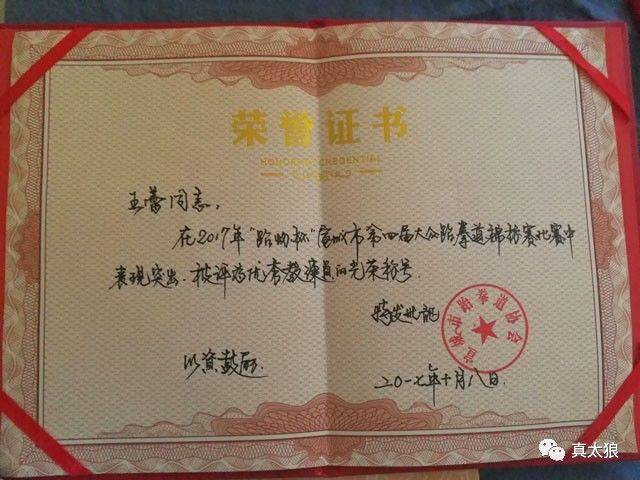 荣誉证书
HONORARY CREDENTIAL
王蕾同志,
在2017年"跆协杯"宣城市第四届大众跆拳道锦标赛比赛中
表现突出.被评为优秀教练员的光荣称号.
特发此证
以资鼓励
宣城市跆拳道协会
二〇一七年十月八日.
真太狼